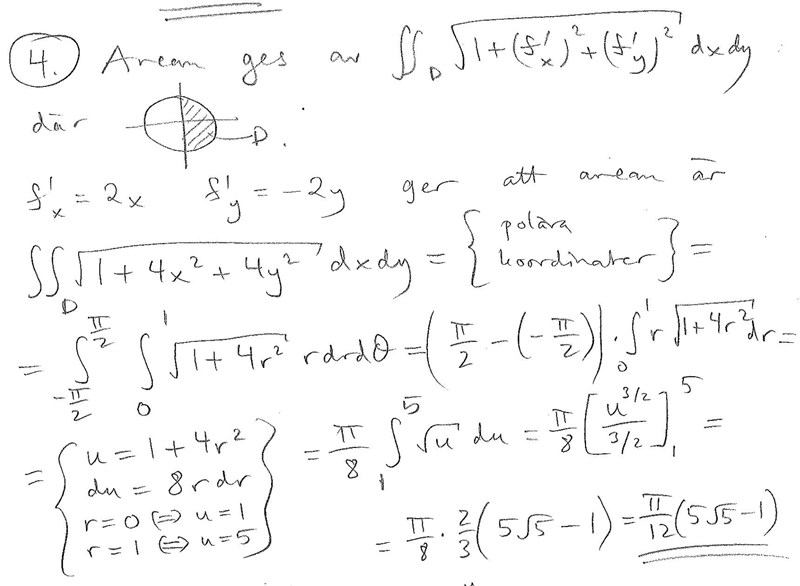 4. Arean ges av ∬_D √(1+(f'_x)²+(f'_y)²) dxdy
där D.
f'_x = 2x f'_y = -2y ger att arean är
∬_D √(1+4x²+4y²) dxdy = {polära koordinater} =
= ∫_{-π/2}^{π/2} ∫_0^1 √(1+4r²) r dr dθ = (π/2 - (-π/2)) · ∫_0^1 r √(1+4r²) dr =
= { u = 1+4r²
du = 8r dr
r=0 ⟺ u=1
r=1 ⟺ u=5 } = π/8 ∫_1^5 √u du = π/8 [u^{3/2}/(3/2)]_1^5 =
= π/8 · 2/3 (5√5 - 1) = π/12 (5√5 - 1)